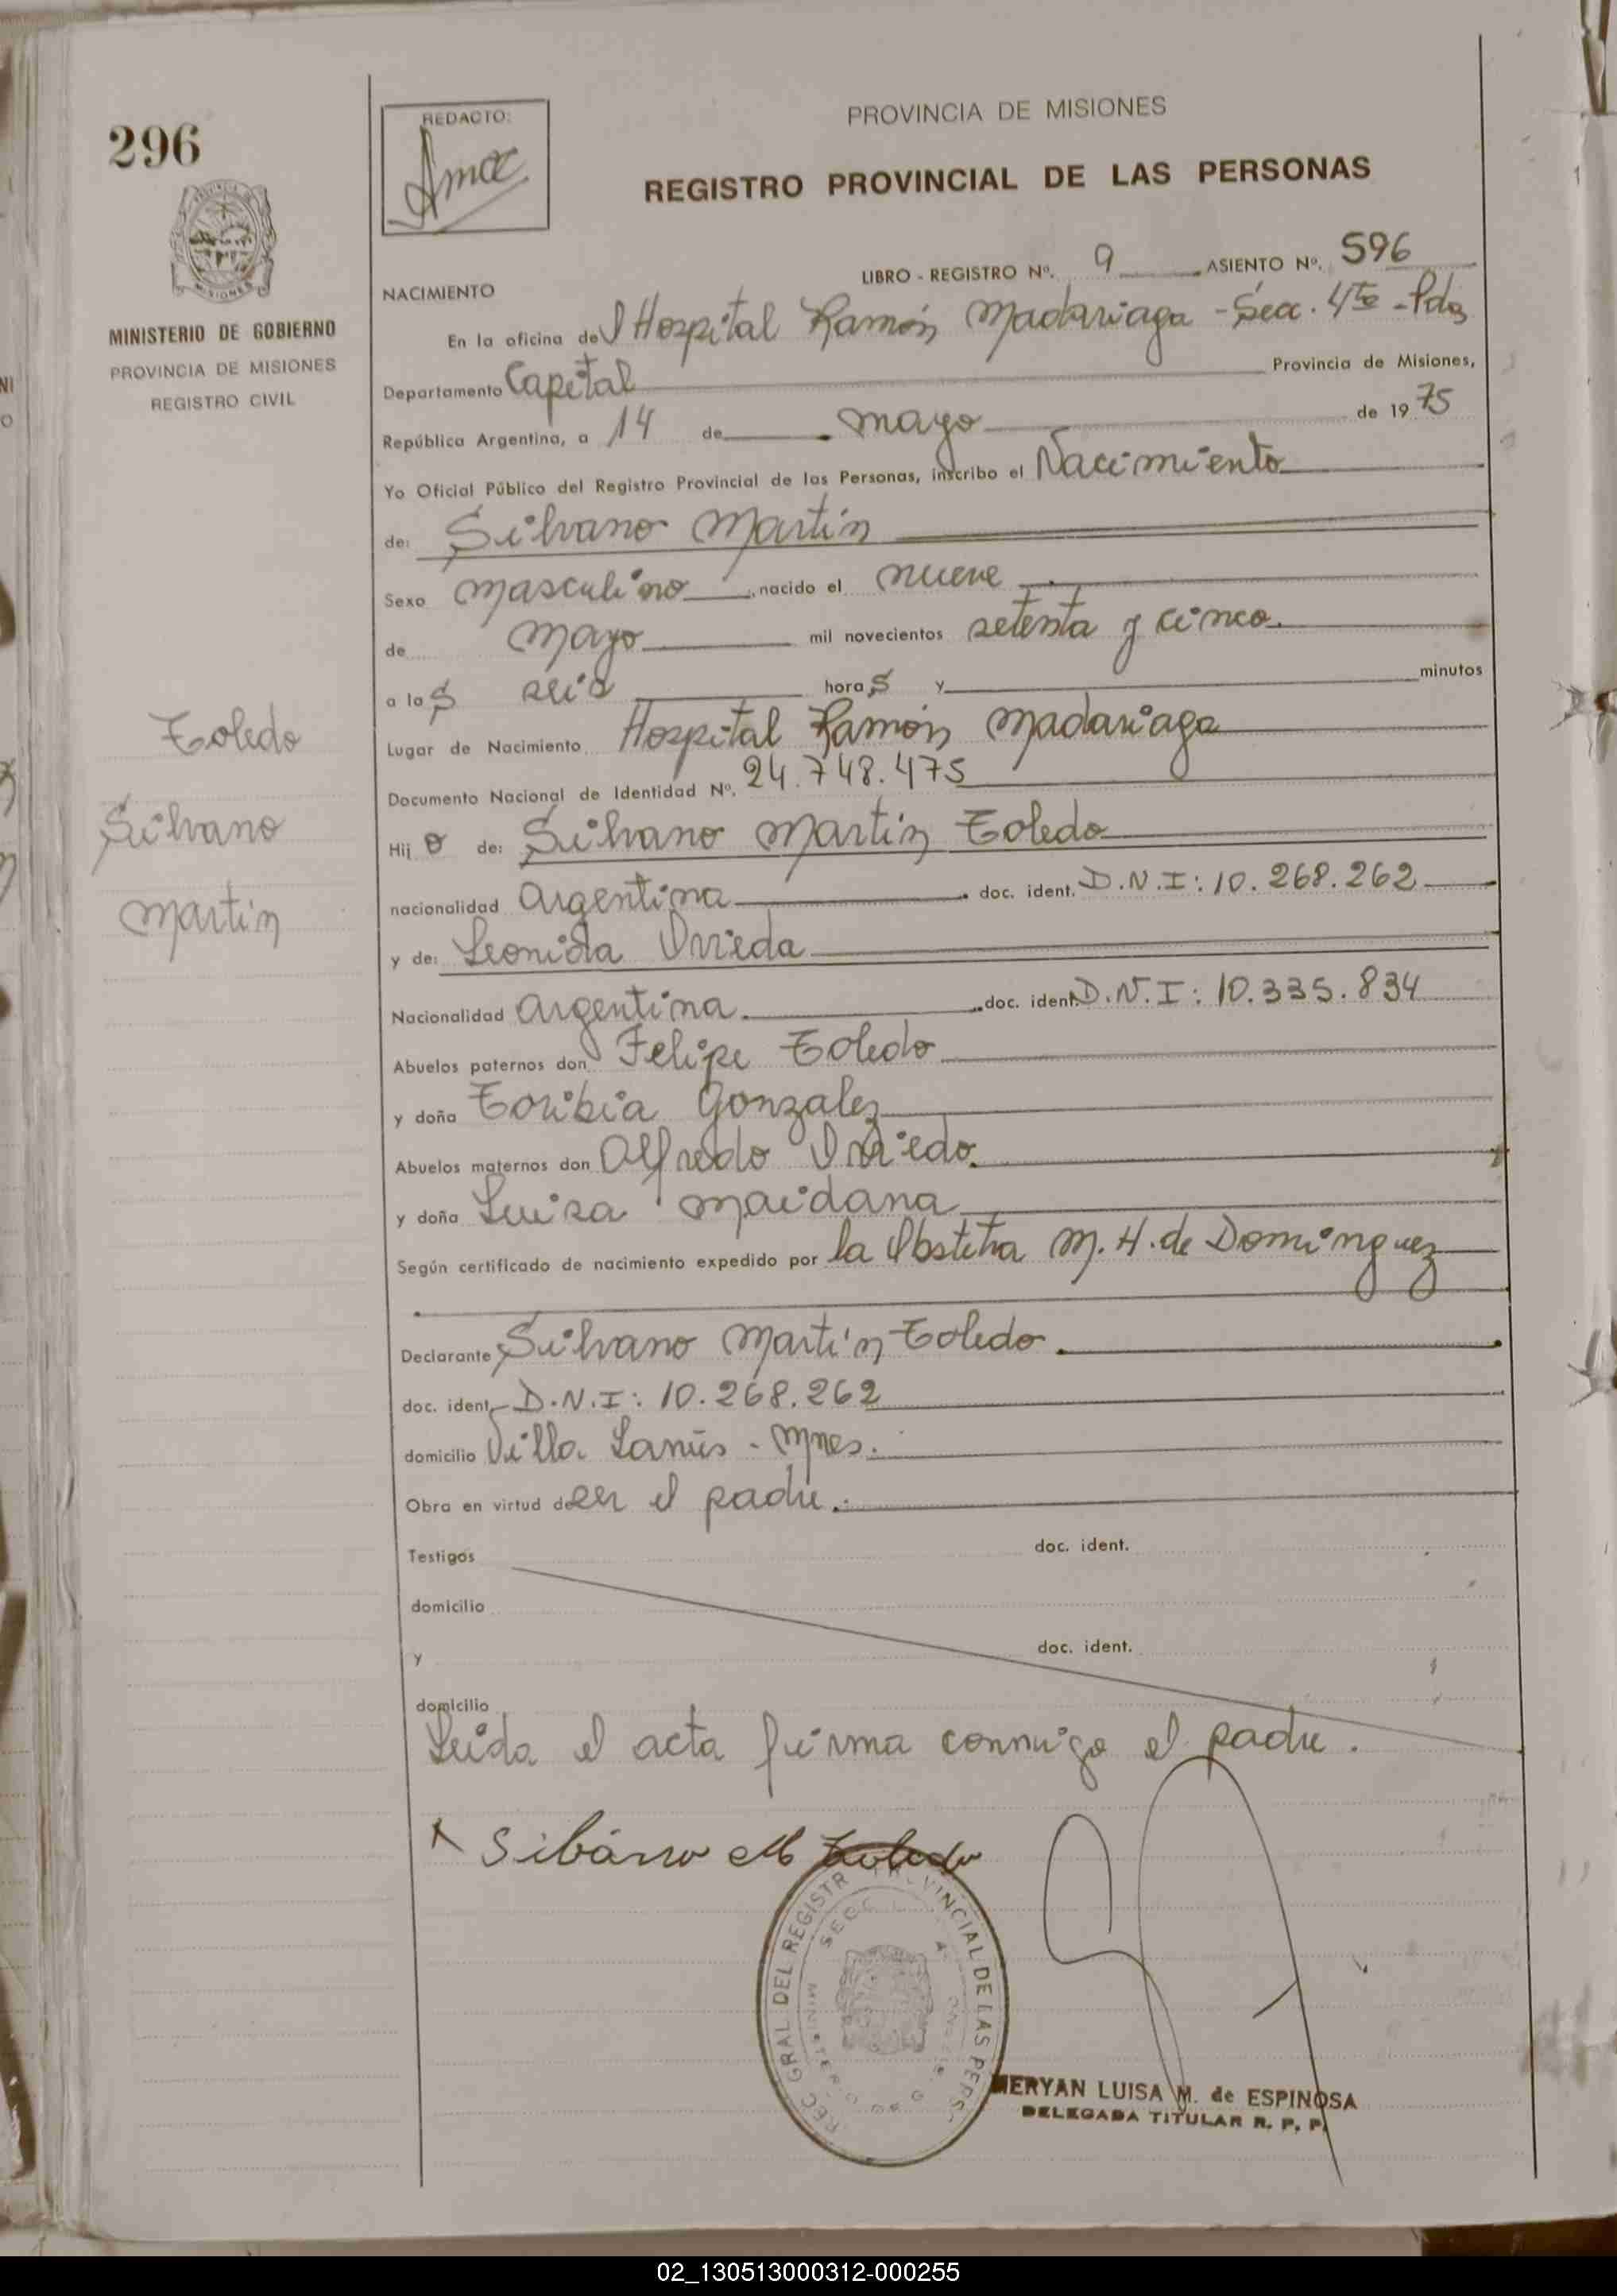 296
MINISTERIO DE GOBIERNO
PROVINCIA DE MISIONES
REGISTRO CIVIL
Toledo
Silvano
Martin
REDACTO:
PROVINCIA DE MISIONES
REGISTRO PROVINCIAL DE LAS PERSONAS
LIBRO - REGISTRO Nº. 9 ASIENTO Nº. 596
NACIMIENTO
En la oficina del Hospital Ramón Madariaga - Secc. 4ta - Pdas
Departamento Capital Provincia de Misiones,
República Argentina, a 14 de mayo de 1975
Yo Oficial Público del Registro Provincial de las Personas, inscribo el Nacimiento
de: Silvano Martín
Sexo masculino, nacido el nueve
de mayo mil novecientos setenta y cinco.
a las seis horas y minutos
Lugar de Nacimiento Hospital Ramón Madariaga
Documento Nacional de Identidad Nº. 24.748.475
Hijo de: Silvano Martín Toledo
nacionalidad Argentina doc. ident. D.N.I: 10.268.262
y de: Leonida Ovieda
Nacionalidad Argentina. doc. ident. D.N.I: 10.335.834
Abuelos paternos don Felipe Toledo
y doña Toribia Gonzalez
Abuelos maternos don Alfredo Oviedo.
y doña Luisa Maidana
Según certificado de nacimiento expedido por la Obstetra M. H. de Dominguez
Declarante Silvano Martín Toledo.
doc. ident. D.N.I: 10.268.262
domicilio Villa Lanús - Mnes.
Obra en virtud de ser el padre.
Testigos doc. ident.
domicilio
y doc. ident.
domicilio
Leida el acta firma conmigo el padre.
Sibáno M Toledo
REC GRAL DEL REGISTRO PROVINCIAL DE LAS PERS.
MERYAN LUISA M. de ESPINOSA
DELEGADA TITULAR R. P. P.
02_130513000312-000255